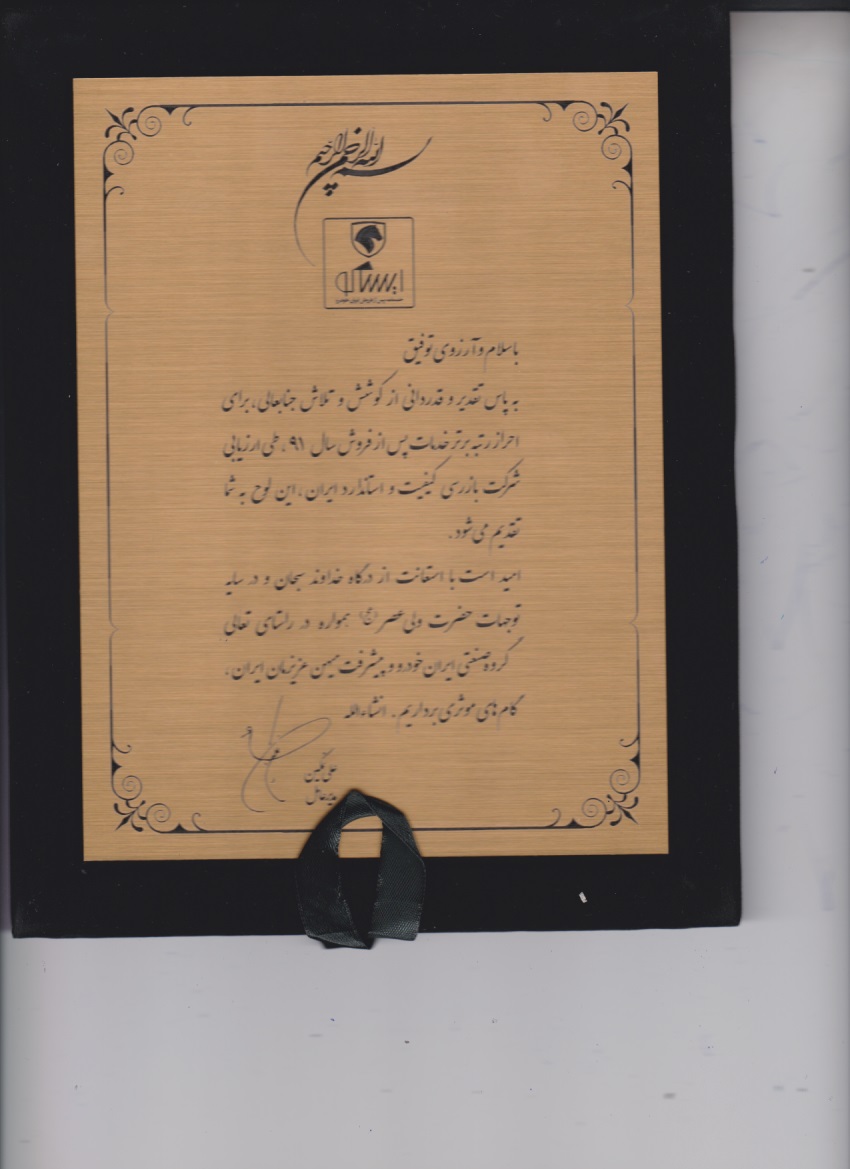 بسم الله الرحمن الرحیم
ایساکو
با سلام و آرزوی توفیق
به پاس تقدیر و قدردانی از کوشش و تلاش جنابعالی، برای
احراز رتبه برتر خدمات پس از فروش سال ۹۱، طی ارزیابی
شرکت بازرسی کیفیت و استاندارد ایران، این لوح به شما
تقدیم می‌شود.
امید است با استعانت از درگاه خداوند سبحان و در سایه
توجهات حضرت ولی عصر (عج) همواره در راستای تعالی
گروه صنعتی ایران خودرو و پیشرفت میهن عزیزمان ایران،
گام های موثری برداریم. انشاءالله
علی نگین
مدیرعامل